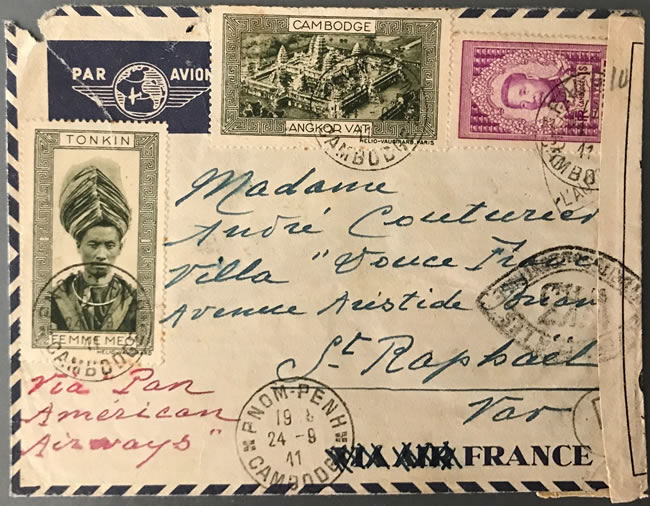 PAR AVION
CAMBODGE
ANGKOR VAT
HELIO-VAUGIRARD, PARIS
TONKIN
FEMME MEO
CAMBODG
Madame
André Couturier
Villa "Douce
Avenue Aristide
St. Raphaël
Var
Via Pan
American
Airways"
PNOM-PENH
19
24-9
41
CAMBODGE
VIA AIR FRANCE